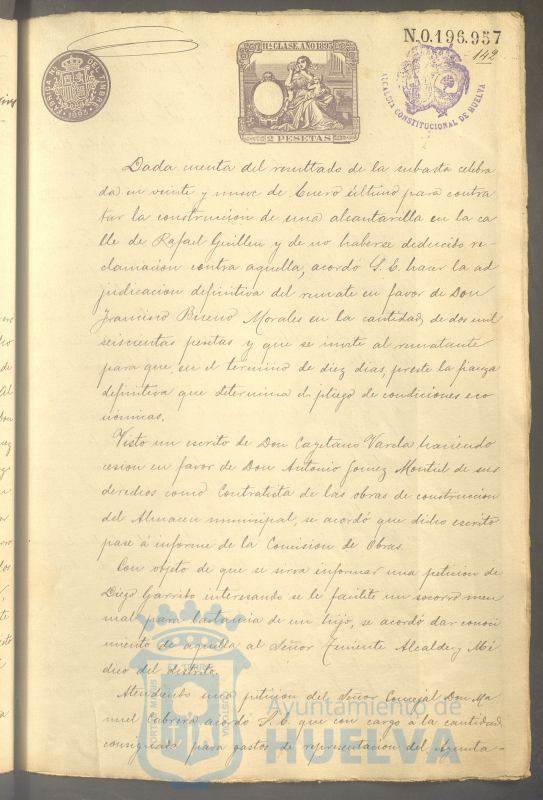 N.0.196.957
142
11ª CLASE. AÑO 1895
2 PESETAS
ALCALDIA CONSTITUCIONAL DE HUELVA
Dada cuenta del resultado de la subasta celebra
da en veinte y nueve de Enero último para contra
tar la construccion de una alcantarilla en la ca
lle de Rafael Guillen y de no haberse deducido re-
clamacion contra aquella, acordó S. E. hacer la ad
judicacion definitiva del remate en favor de Don
Francisco Bueno Morales en la cantidad de dos mil
seiscientas pesetas y que se invite al rematante
para que, en el termino de diez dias, preste la fianza
definitiva que determina el pliego de condiciones eco
nómicas.
Visto un escrito de Don Cayetano Varela haciendo
cesion en favor de Don Antonio Gomez Montiel de sus
derechos como Contratista de las obras de construccion
del Almacen municipal, se acordó que dicho escrito
pase á informe de la Comision de Obras.
Con objeto de que se sirva informar una peticion de
Diego Garrido interesando se le facilite un socorro men
sual para lactancia de un hijo, se acordó dar conoci
miento de aquella al Señor Teniente Alcalde y Mé
dico del distrito.
Atendiendo una peticion del Señor Concejal Don Ma
nuel Cabrera acordó S. E. que con cargo á la cantidad
consignada para gastos de representacion del Ayunta-
PORTUS MARIS ET TERRAE CUSTODIA
Ayuntamiento de
HUELVA